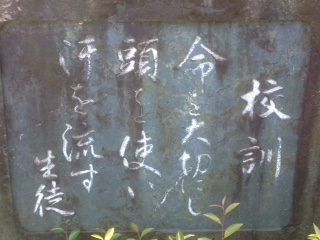 校訓
命を大切にし
頭を使い
汗を流す
生徒